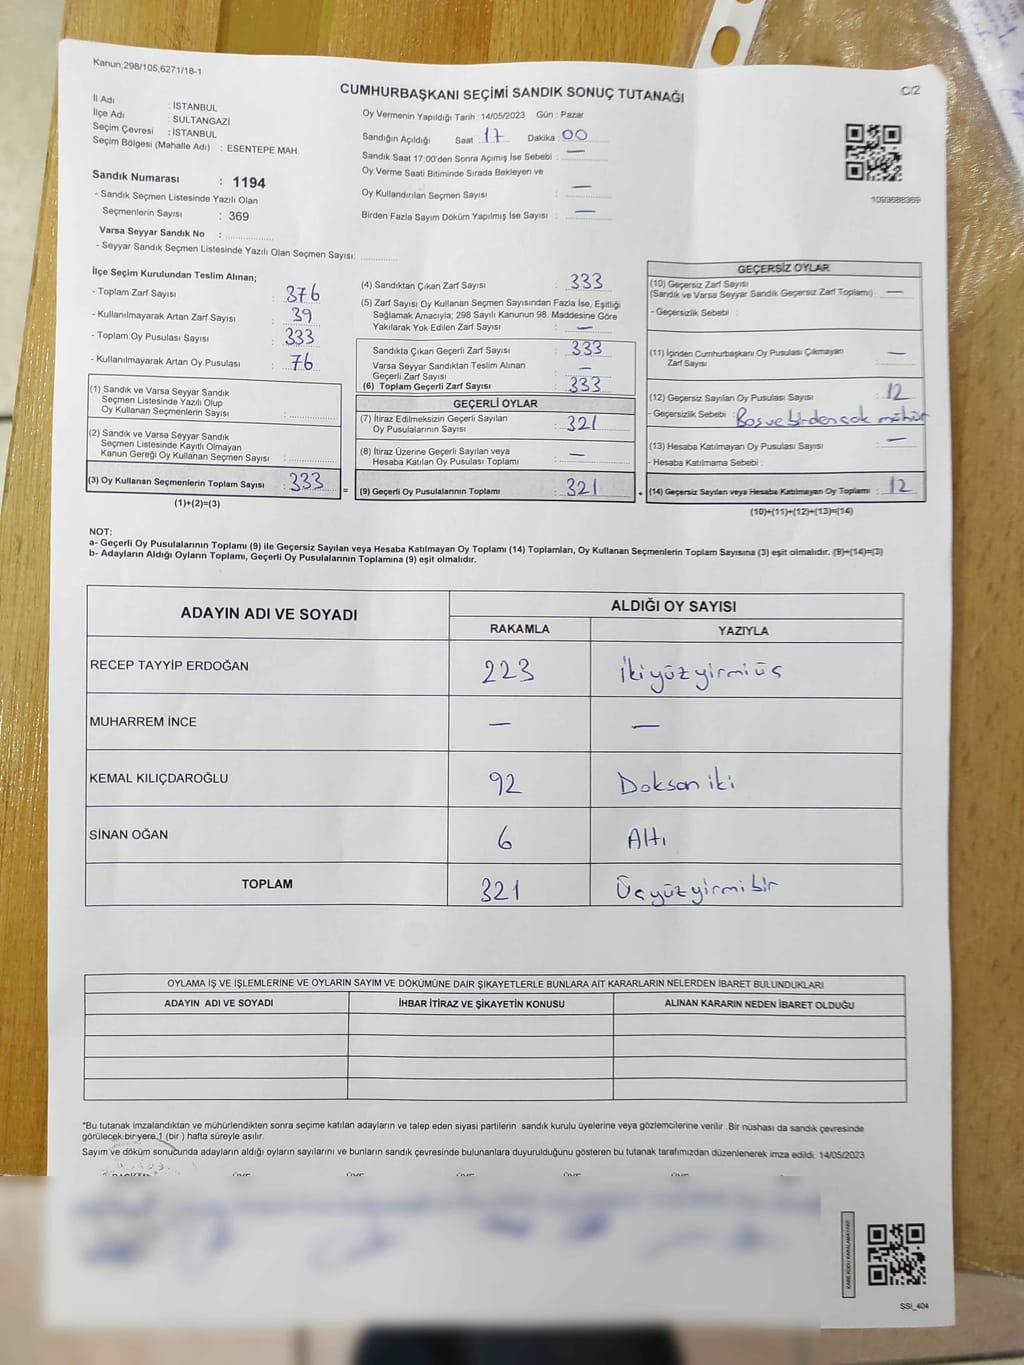 Kanun;298/105;6271/18-1
CUMHURBAŞKANI SEÇİMİ SANDIK SONUÇ TUTANAĞI
C/2
İl Adı : İSTANBUL
İlçe Adı : SULTANGAZİ
Seçim Çevresi : İSTANBUL
Seçim Bölgesi (Mahalle Adı) : ESENTEPE MAH.
Sandık Numarası : 1194
- Sandık Seçmen Listesinde Yazılı Olan
Seçmenlerin Sayısı : 369
Varsa Seyyar Sandık No :
- Seyyar Sandık Seçmen Listesinde Yazılı Olan Seçmen Sayısı:
Oy Vermenin Yapıldığı Tarih : 14/05/2023 Gün : Pazar
Sandığın Açıldığı Saat : 17 Dakika : 00
Sandık Saat 17:00'den Sonra Açımış İse Sebebi : —
Oy Verme Saati Bitiminde Sırada Bekleyen ve
Oy Kullandırılan Seçmen Sayısı : —
Birden Fazla Sayım Döküm Yapılmış İse Sayısı : —
1093688369
İlçe Seçim Kurulundan Teslim Alınan;
- Toplam Zarf Sayısı : 376
- Kullanılmayarak Artan Zarf Sayısı : 39
- Toplam Oy Pusulası Sayısı : 333
- Kullanılmayarak Artan Oy Pusulası : 76
(1) Sandık ve Varsa Seyyar Sandık
Seçmen Listesinde Yazılı Olup
Oy Kullanan Seçmenlerin Sayısı :
(2) Sandık ve Varsa Seyyar Sandık
Seçmen Listesinde Kayıtlı Olmayan
Kanun Gereği Oy Kullanan Seçmen Sayısı :
(3) Oy Kullanan Seçmenlerin Toplam Sayısı : 333
(1)+(2)=(3)
(4) Sandıktan Çıkan Zarf Sayısı : 333
(5) Zarf Sayısı Oy Kullanan Seçmen Sayısından Fazla İse, Eşitliği
Sağlamak Amacıyla; 298 Sayılı Kanunun 98. Maddesine Göre
Yakılarak Yok Edilen Zarf Sayısı : —
Sandıkta Çıkan Geçerli Zarf Sayısı : 333
Varsa Seyyar Sandıktan Teslim Alınan
Geçerli Zarf Sayısı : —
(6) Toplam Geçerli Zarf Sayısı : 333
GEÇERLİ OYLAR
(7) İtiraz Edilmeksizin Geçerli Sayılan
Oy Pusulalarının Sayısı : 321
(8) İtiraz Üzerine Geçerli Sayılan veya
Hesaba Katılan Oy Pusulası Toplamı : —
= (9) Geçerli Oy Pusulalarının Toplamı : 321
GEÇERSİZ OYLAR
(10) Geçersiz Zarf Sayısı
(Sandık ve Varsa Seyyar Sandık Geçersiz Zarf Toplamı) : —
- Geçersizlik Sebebi :
(11) İçinden Cumhurbaşkanı Oy Pusulası Çıkmayan
Zarf Sayısı : —
(12) Geçersiz Sayılan Oy Pusulası Sayısı : 12
- Geçersizlik Sebebi : Boş ve birden çok mühür
(13) Hesaba Katılmayan Oy Pusulası Sayısı : —
- Hesaba Katılmama Sebebi :
+ (14) Geçersiz Sayılan veya Hesaba Katılmayan Oy Toplamı : 12
(10)+(11)+(12)+(13)=(14)
NOT:
a- Geçerli Oy Pusulalarının Toplamı (9) ile Geçersiz Sayılan veya Hesaba Katılmayan Oy Toplamı (14) Toplamları, Oy Kullanan Seçmenlerin Toplam Sayısına (3) eşit olmalıdır. (9)+(14)=(3)
b- Adayların Aldığı Oyların Toplamı, Geçerli Oy Pusulalarının Toplamına (9) eşit olmalıdır.
ADAYIN ADI VE SOYADI
ALDIĞI OY SAYISI
RAKAMLA YAZIYLA
RECEP TAYYİP ERDOĞAN 223 İkiyüzyirmiüç
MUHARREM İNCE — —
KEMAL KILIÇDAROĞLU 92 Doksan iki
SİNAN OĞAN 6 Altı
TOPLAM 321 Üçyüzyirmibir
OYLAMA İŞ VE İŞLEMLERİNE VE OYLARIN SAYIM VE DÖKÜMÜNE DAİR ŞİKAYETLERLE BUNLARA AİT KARARLARIN NELERDEN İBARET BULUNDUKLARI
ADAYIN ADI VE SOYADI İHBAR İTİRAZ VE ŞİKAYETİN KONUSU ALINAN KARARIN NEDEN İBARET OLDUĞU
*Bu tutanak imzalandıktan ve mühürlendikten sonra seçime katılan adayların ve talep eden siyasi partilerin sandık kurulu üyelerine veya gözlemcilerine verilir .Bir nüshası da sandık çevresinde
görülecek bir yere 1 (bir ) hafta süreyle asılır.
Sayım ve döküm sonucunda adayların aldığı oyların sayılarını ve bunların sandık çevresinde bulunanlara duyurulduğunu gösteren bu tutanak tarafımızdan düzenlenerek imza edildi. 14/05/2023
SSİ_404